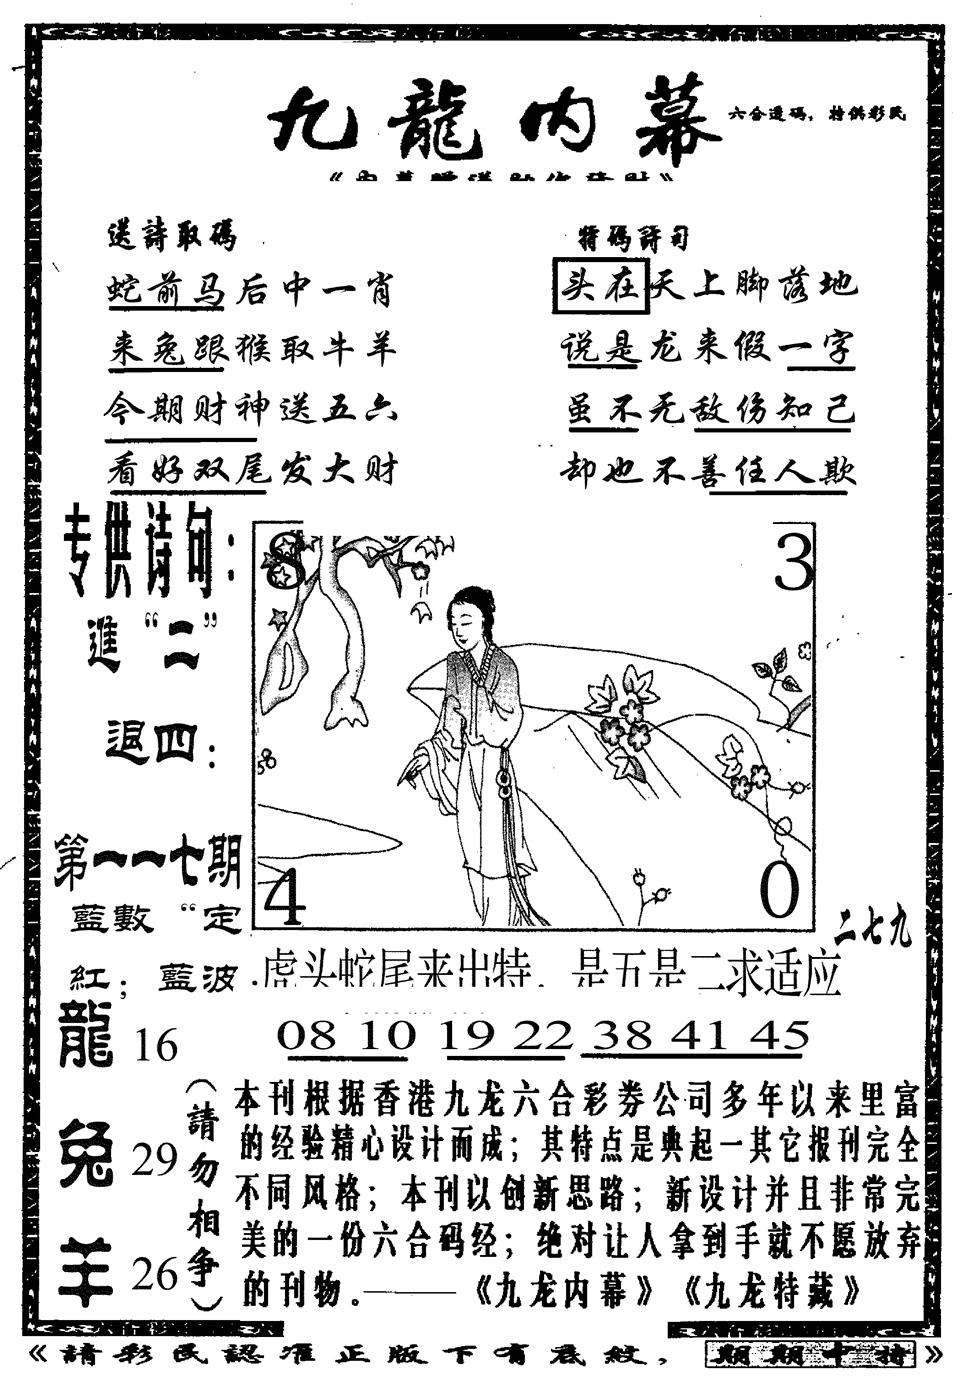 九龍内幕
六合透码，特供彩民
送詩取碼
蛇前马后中一肖
来兔跟猴取牛羊
今期财神送五六
看好双尾发大财
特碼詩句
头在天上脚落地
说是龙来假一字
虽不无敌伤知己
却也不善任人欺
专供诗句：
進“二”
退四：
第一一七期
藍數“定
紅；藍波
8
3
4
0
二七九
虎头蛇尾来出特．是五是二求适应
08 10 19 22 38 41 45
龍 16
兔 29
羊 26
（請勿相争）
本刊根据香港九龙六合彩券公司多年以来里富
的经验精心设计而成；其特点是典起一其它报刊完全
不同风格；本刊以创新思路；新设计并且非常完
美的一份六合码经；绝对让人拿到手就不愿放弃
的刊物。——《九龙内幕》《九龙特藏》
《請彩民認准正版下有底紋，期期中特》